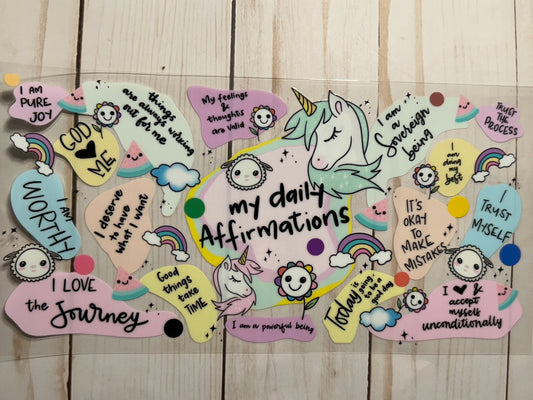 I AM
PURE
JOY
things
are always working
out for me
My feelings
&
thoughts
are valid
I am
a
Sovereign
being
TRUST
THE
PROCESS
GOD
♥
ME
I
am
doing my
best
I AM
WORTHY
I deserve
to have
what I want
my daily
Affirmations
IT'S
OKAY
TO
MAKE
MISTAKES
I
TRUST
MYSELF
I LOVE
the Journey
Good
things
take
TIME
I am a powerful being
Today is
going
to be a
good day
I ♥ &
accept
myself
unconditionally